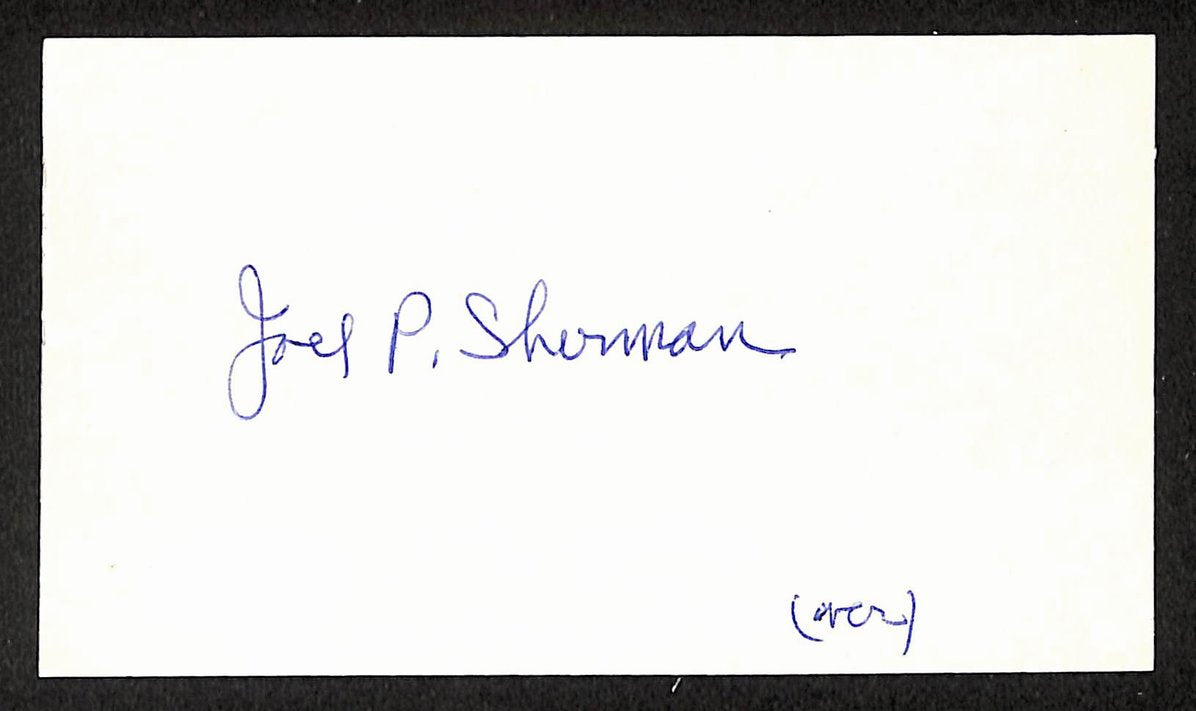 Joel P. Sherman
(over)